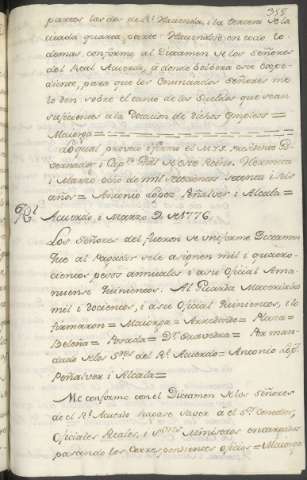 355
partes las dos de Rl. Hacienda, i la tercera de la
citada quarta parte. Haciendose en todo lo
demas conforme al Dictamen de los Señores
del Real Acuerdo, a donde bolverá este Expe-
diente, para que los enunciados Señores me
lo den sobre el tanto de los Sueldos que sean
suficientes a la Dotacion de dichos Empleos=
Maiorga=
Lo qual proveió i firmó el M.Y.S. Presidente Go-
vernador i Capn. Gral. de este Reino. Hermita
i Marzo dos de mil setecientos setenta i seis
años= Antonio Lopez Peñalver i Alcala=
Rl.
Acuerdo, i Marzo 9. de 1776.
Los Señores del fueron de uniforme Dictamen
que al Pagador se le asignen mil i quatro-
cientos pesos annuales i a su Oficial Ama-
nuense quinientos. Al Guarda Materiales
mil i docientos, i a su Oficial quinientos, i lo
firmaron= Maiorga= Arredondo= Plaza=
Beleña= Posada= Dr. Saavedra= Por man-
dado de los Sres. del Rl. Acuerdo= Antonio Lopz.
Peñalver i Alcala=
Me conformo con el Dictamen de los Señores
de el Rl. Acuerdo hagase saver á el Sr. Contador,
Oficiales Reales, i Ministros encargados
pasando los correspondientes oficios= Maiorga